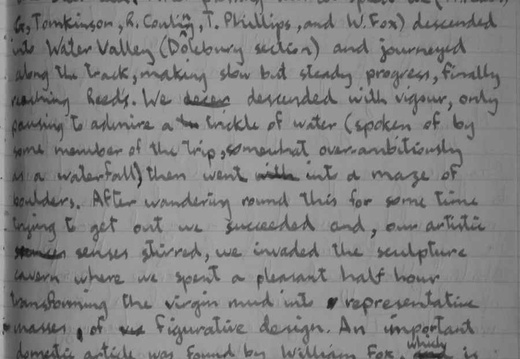 G. Tomkinson, R. Conling, T. Phillips, and W. Fox) descended
into Water Valley (Dolebury section) and journeyed
along the track, making slow but steady progress, finally
reaching Reeds. We descended with vigour, only
pausing to admire a trickle of water (spoken of by
some member of the trip, somewhat over-ambitiously
as a waterfall) then went with into a maze of
boulders. After wandering round this for some time
trying to get out we succeeded and, our artistic
senses stirred, we invaded the sculpture
cavern where we spent a pleasant half hour
transforming the virgin mud into representative
masses, of figurative design. An important
domestic article was found by William Fox, which is